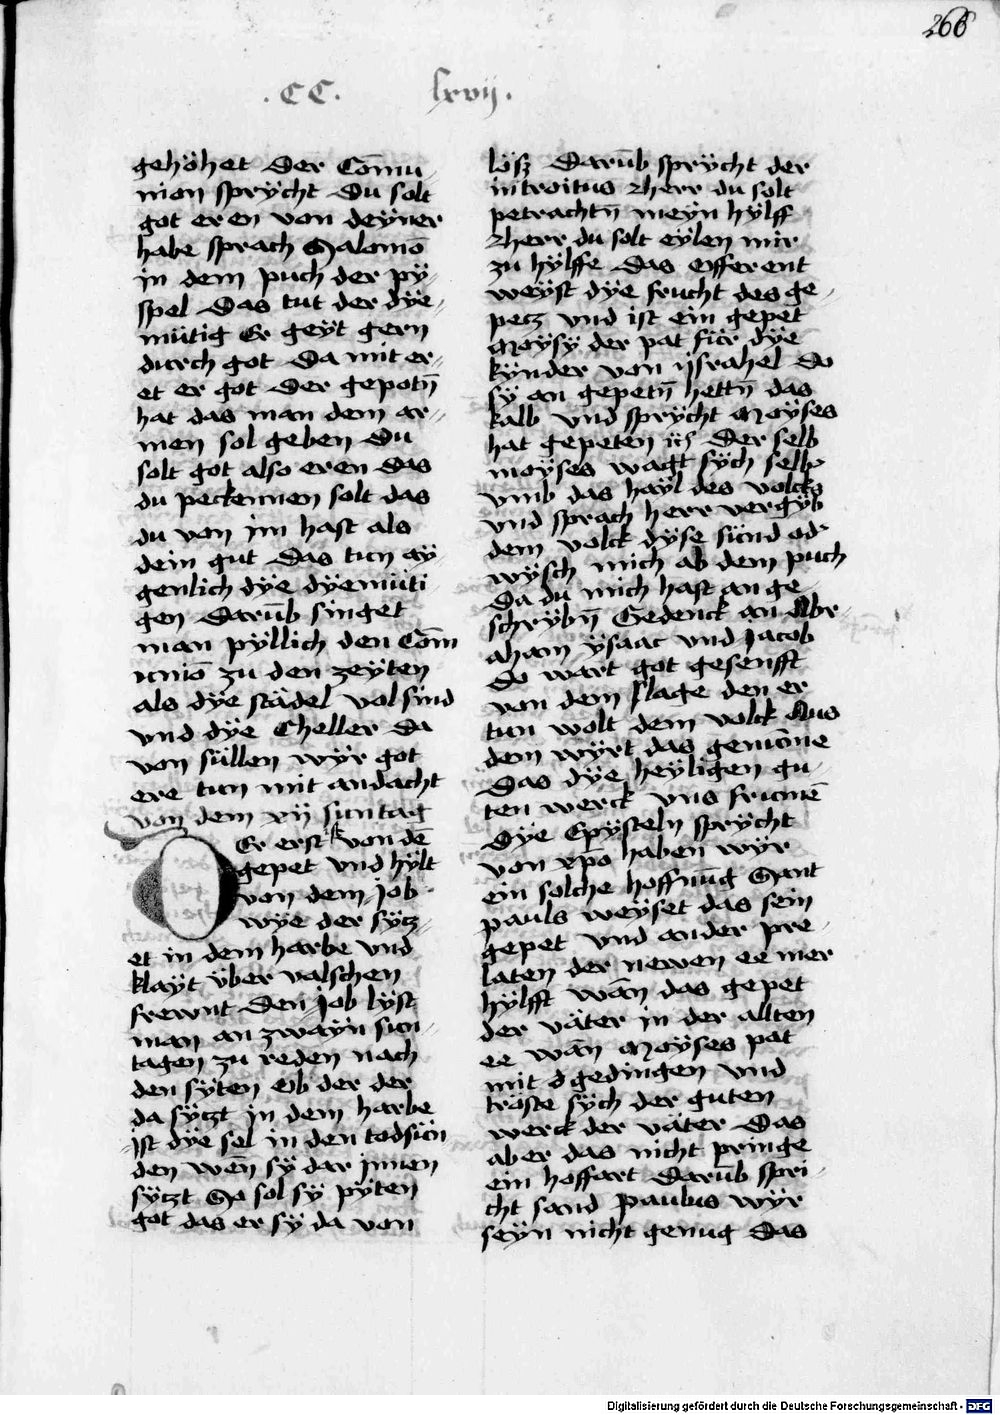 266
.CC. lxvij.
gehöhet Der Com̄u-
nion sprÿcht Du solt
got eren von deÿner
habe sprach Salomō
in dem puch der pÿ-
spel Das tut der dÿe-
mütig Er geÿt gern
durch got Da mit er-
et er got Der gepotn̄
hat das man dem ar-
men sol geben Du
solt got also eren Das
du peckennen solt das
du von im hast als
dein gut Das tun aÿ-
genlich dÿe dÿemüti
gen Darūb singet
man pÿllich den Com̄
uniō zu den zeÿten
als dÿe städel vol sind
vnd dÿe Cheller Da
von süllen wÿr got
ere tun mit andacht
von dem xij suntag
DEr erst k von dē
gepet vnd hÿlt
von dem Job
wÿe der sÿtz-
et in dem harbe vnd
klaÿt vber valschen
frewnt Den Job lÿst
man an zwaÿn sun-
tagen zu reden nach
den sÿten Ob der der
da sÿtzt in dem harbe
Jst dÿe sel in den todsün
den wen̄ sÿ dar jnnen
sÿtzt So sol sÿ pÿten
got das er sÿ da von
lösz Darūb sprÿcht der
introitus Herr du solt
petrachtn̄ meÿn hÿlff
Herr du solt eÿlen mir
zu hÿlffe Das offerent
weÿst dÿe frucht des ge-
petz vnd ist ein gepet
Moÿsÿ der pat für dÿe
kÿnder von jsrahel Do
sÿ an gepetn̄ hettn̄ das
kalb vnd sprÿcht Moÿses
hat gepeten Der selb
moÿses wagt sÿch selb
vmb das haÿl des volcks
vnd sprach herr vergÿb
dem volck dÿse sünd od'
wÿsch mich ab dem puch
Da du mich hast an ge-
schrÿbn̄ Gedenck an Abr-
aham ÿsaac vnd Jacob
Do wart got gesenfft
von dem slage den er
tun wolt dem volck Aus
dem wÿrt das genūme
Das dÿe heÿligen gu-
ten werck vns frumē
Dÿe Epÿsteln sprÿcht
von xpō haben wÿr
ein solche hoffnug Sant
pauls weÿset das sein
gepet vnd ander pre-
laten der newen ee mer
hÿlfft wān das gepet
der väter in der allten
ee wān Moÿses pat
mit dgedingen vnd
tröste sÿch der guten
werck der väter Das
aber das nicht pringe
ein hoffart Darūb spri-
cht sand Paulus wÿr
seÿn nicht genug Das
Digitalisierung gefördert durch die Deutsche Forschungsgemeinschaft - DFG